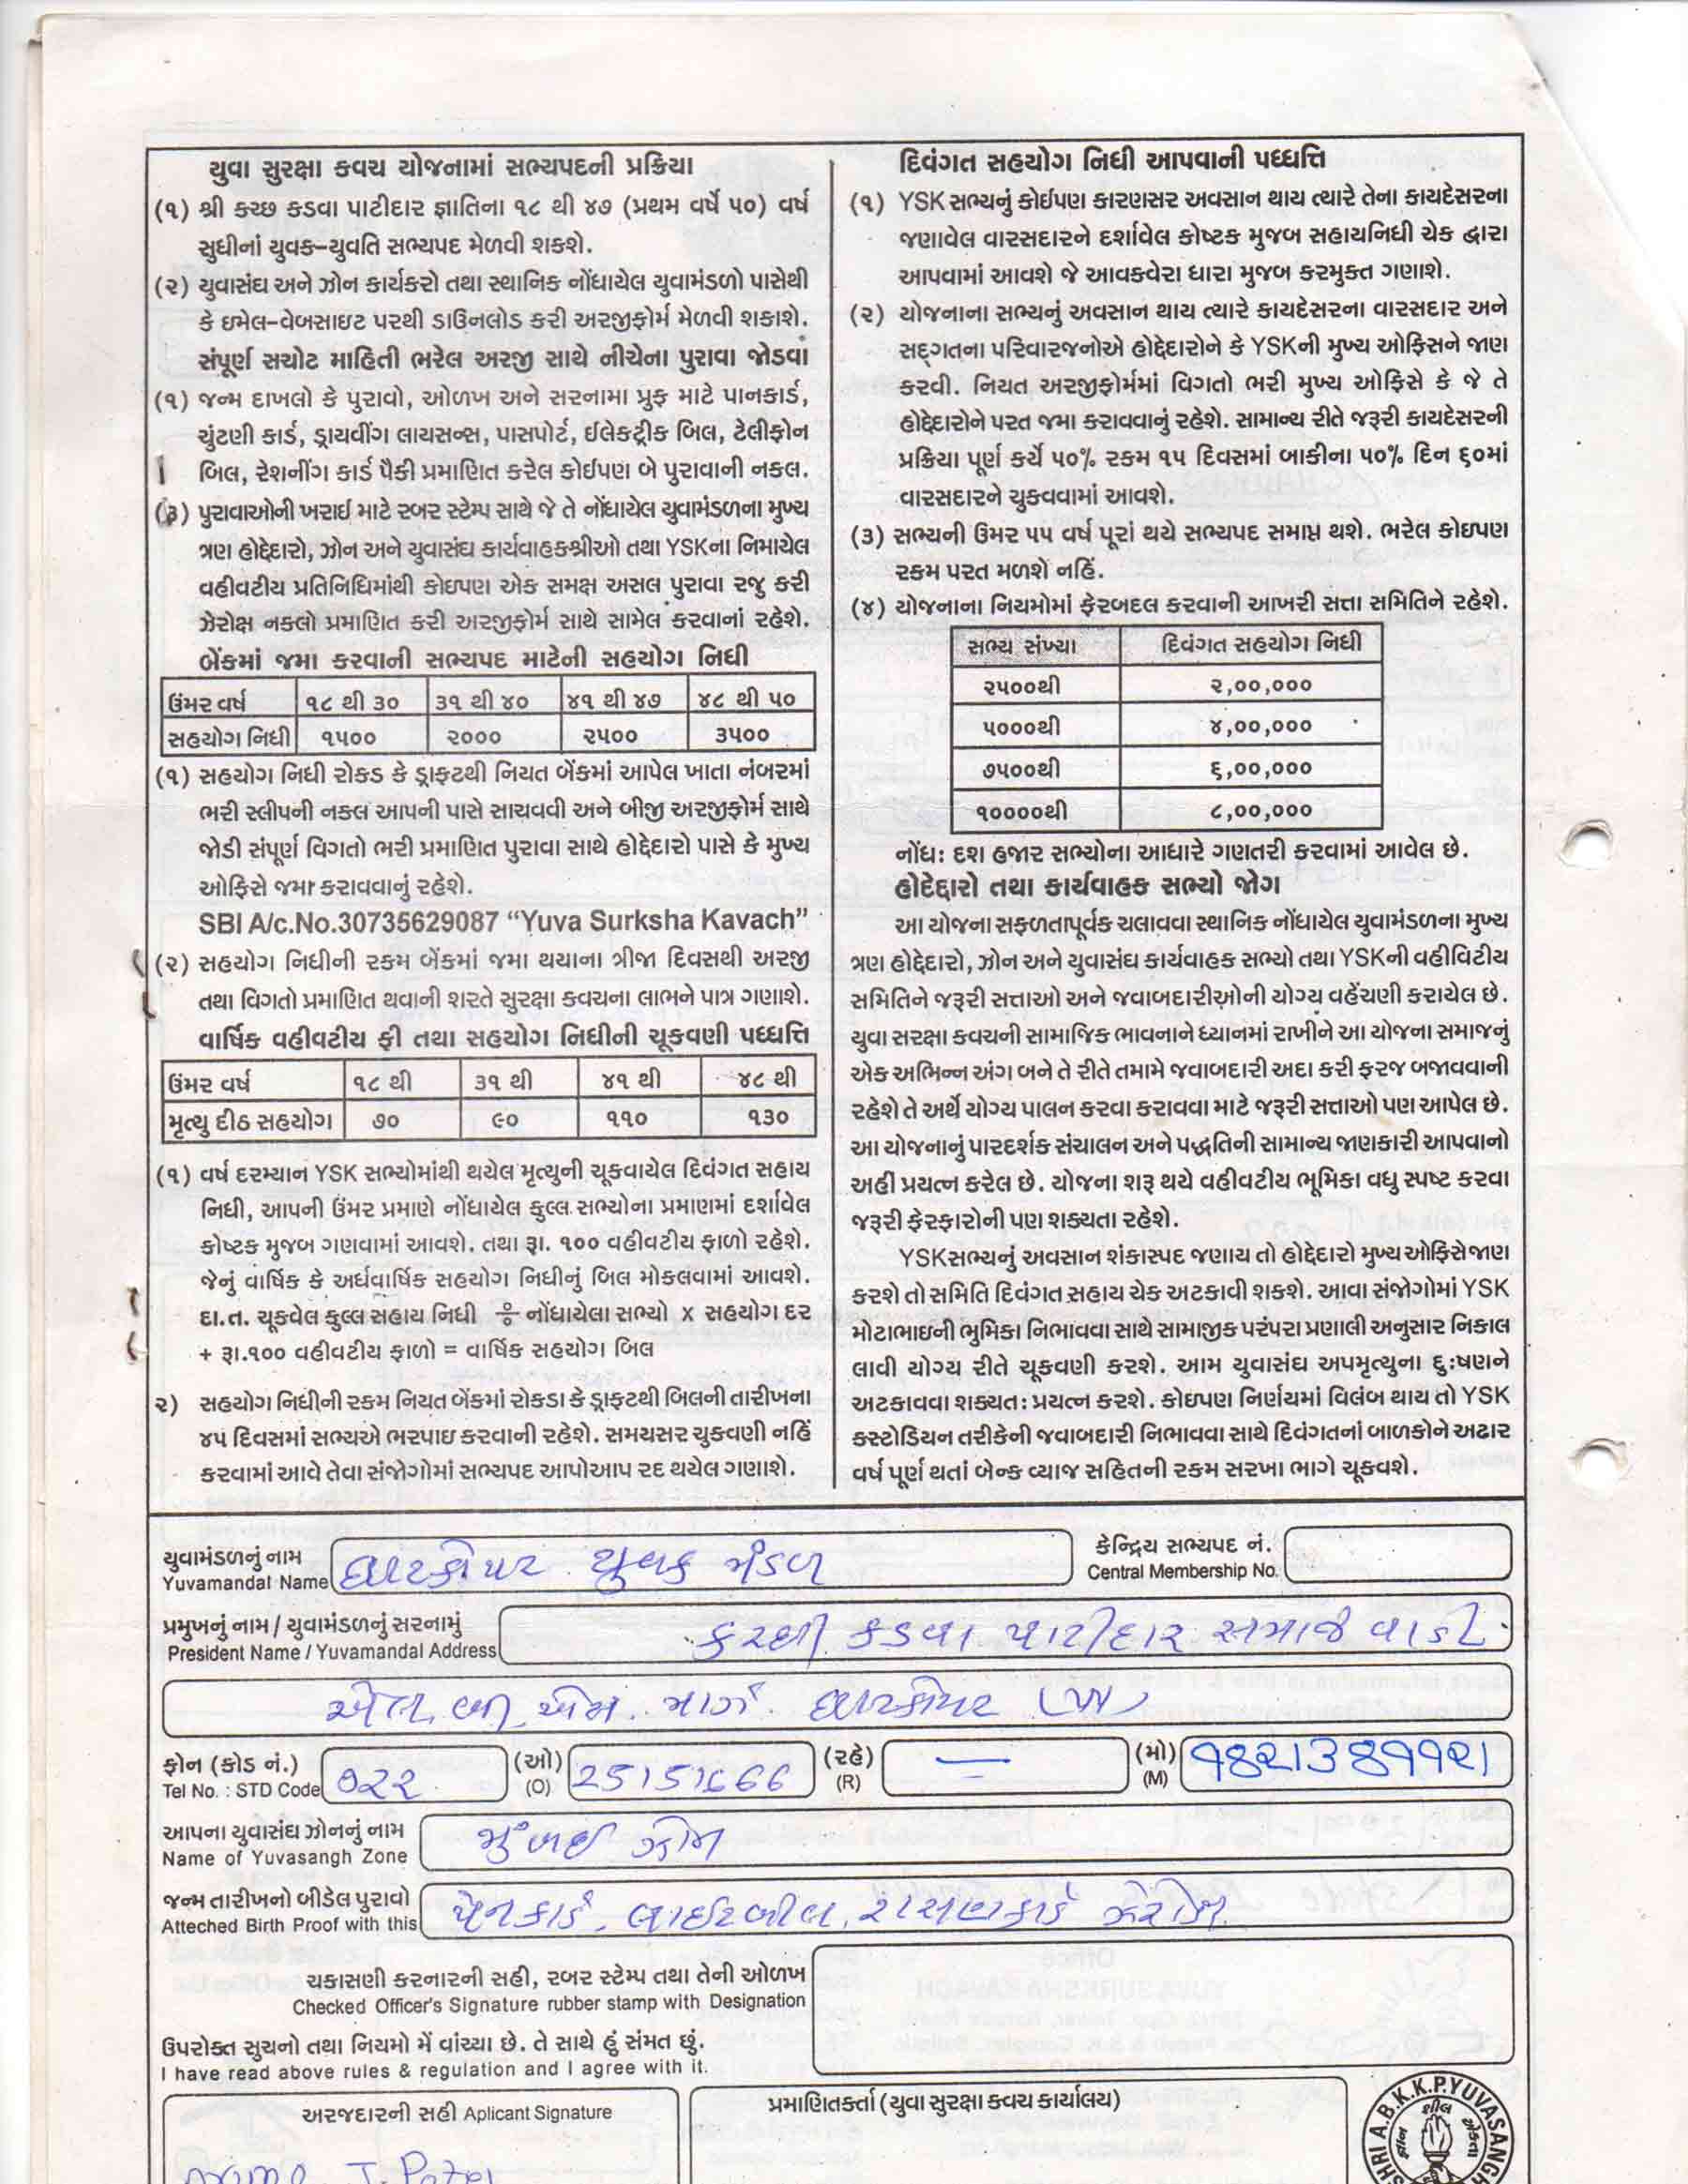 યુવા સુરક્ષા કવચ યોજનામાં સભ્યપદની પ્રક્રિયા
(૧) શ્રી કચ્છ કડવા પાટીદાર જ્ઞાતિના ૧૮ થી ૪૭ (પ્રથમ વર્ષે ૫૦) વર્ષ
સુધીનાં યુવક-યુવતિ સભ્યપદ મેળવી શકશે.
(૨) યુવાસંઘ અને ઝોન કાર્યકરો તથા સ્થાનિક નોંધાયેલ યુવામંડળો પાસેથી
કે ઇમેલ-વેબસાઇટ પરથી ડાઉનલોડ કરી અરજીફોર્મ મેળવી શકાશે.
સંપૂર્ણ સચોટ માહિતી ભરેલ અરજી સાથે નીચેના પુરાવા જોડવાં
(૧) જન્મ દાખલો કે પુરાવો, ઓળખ અને સરનામા પ્રુફ માટે પાનકાર્ડ,
ચુંટણી કાર્ડ, ડ્રાયવીંગ લાયસન્સ, પાસપોર્ટ, ઈલેક્ટ્રીક બિલ, ટેલીફોન
બિલ, રેશનીંગ કાર્ડ પૈકી પ્રમાણિત કરેલ કોઈપણ બે પુરાવાની નકલ.
(૩) પુરાવાઓની ખરાઈ માટે રબર સ્ટેમ્પ સાથે જે તે નોંધાયેલ યુવામંડળના મુખ્ય
ત્રણ હોદ્દેદારો, ઝોન અને યુવાસંઘ કાર્યવાહકશ્રીઓ તથા YSKના નિમાયેલ
વહીવટીય પ્રતિનિધિમાંથી કોઇપણ એક સમક્ષ અસલ પુરાવા રજુ કરી
ઝેરોક્ષ નકલો પ્રમાણિત કરી અરજીફોર્મ સાથે સામેલ કરવાનાં રહેશે.
બેંકમાં જમા કરવાની સભ્યપદ માટેની સહયોગ નિધી
ઉંમર વર્ષ ૧૮ થી ૩૦ ૩૧ થી ૪૦ ૪૧ થી ૪૭ ૪૮ થી ૫૦
સહયોગ નિધી ૧૫૦૦ ૨૦૦૦ ૨૫૦૦ ૩૫૦૦
(૧) સહયોગ નિધી રોકડ કે ડ્રાફ્ટથી નિયત બેંકમાં આપેલ ખાતા નંબરમાં
ભરી સ્લીપની નકલ આપની પાસે સાચવવી અને બીજી અરજીફોર્મ સાથે
જોડી સંપૂર્ણ વિગતો ભરી પ્રમાણિત પુરાવા સાથે હોદ્દેદારો પાસે કે મુખ્ય
ઓફિસે જમા કરાવવાનું રહેશે.
SBI A/c.No.30735629087 "Yuva Surksha Kavach"
(૨) સહયોગ નિધીની રકમ બેંકમાં જમા થયાના ત્રીજા દિવસથી અરજી
તથા વિગતો પ્રમાણિત થવાની શરતે સુરક્ષા કવચના લાભને પાત્ર ગણાશે.
વાર્ષિક વહીવટીય ફી તથા સહયોગ નિધીની ચૂકવણી પધ્ધતિ
ઉંમર વર્ષ ૧૮ થી ૩૧ થી ૪૧ થી ૪૮ થી
મૃત્યુ દીઠ સહયોગ ૭૦ ૯૦ ૧૧૦ ૧૩૦
(૧) વર્ષ દરમ્યાન YSK સભ્યોમાંથી થયેલ મૃત્યુની ચૂકવાયેલ દિવંગત સહાય
નિધી, આપની ઉંમર પ્રમાણે નોંધાયેલ કુલ્લ સભ્યોના પ્રમાણમાં દર્શાવેલ
કોષ્ટક મુજબ ગણવામાં આવશે. તથા રૂા. ૧૦૦ વહીવટીય ફાળો રહેશે.
જેનું વાર્ષિક કે અર્ધવાર્ષિક સહયોગ નિધીનું બિલ મોકલવામાં આવશે.
દા.ત. ચૂકવેલ કુલ્લ સહાય નિધી ÷ નોંધાયેલા સભ્યો x સહયોગ દર
+ રૂા.૧૦૦ વહીવટીય ફાળો = વાર્ષિક સહયોગ બિલ
૨) સહયોગ નિધીની રકમ નિયત બેંકમાં રોકડા કે ડ્રાફ્ટથી બિલની તારીખના
૪૫ દિવસમાં સભ્યએ ભરપાઇ કરવાની રહેશે. સમયસર ચુકવણી નહિં
કરવામાં આવે તેવા સંજોગોમાં સભ્યપદ આપોઆપ રદ થયેલ ગણાશે.
દિવંગત સહયોગ નિધી આપવાની પધ્ધતિ
(૧) YSK સભ્યનું કોઈપણ કારણસર અવસાન થાય ત્યારે તેના કાયદેસરના
જણાવેલ વારસદારને દર્શાવેલ કોષ્ટક મુજબ સહાયનિધી ચેક દ્વારા
આપવામાં આવશે જે આવકવેરા ધારા મુજબ કરમુક્ત ગણાશે.
(૨) યોજનાના સભ્યનું અવસાન થાય ત્યારે કાયદેસરના વારસદાર અને
સદ્ગતના પરિવારજનોએ હોદ્દેદારોને કે YSKની મુખ્ય ઓફિસને જાણ
કરવી. નિયત અરજીફોર્મમાં વિગતો ભરી મુખ્ય ઓફિસે કે જે તે
હોદ્દેદારોને પરત જમા કરાવવાનું રહેશે. સામાન્ય રીતે જરૂરી કાયદેસરની
પ્રક્રિયા પૂર્ણ કર્યે ૫૦% રકમ ૧૫ દિવસમાં બાકીના ૫૦% દિન ૬૦માં
વારસદારને ચુકવવામાં આવશે.
(૩) સભ્યની ઉંમર ૫૫ વર્ષ પૂરાં થયે સભ્યપદ સમાપ્ત થશે. ભરેલ કોઇપણ
રકમ પરત મળશે નહિં.
(૪) યોજનાના નિયમોમાં ફેરબદલ કરવાની આખરી સત્તા સમિતિને રહેશે.
સભ્ય સંખ્યા દિવંગત સહયોગ નિધી
૨૫૦૦થી ૨,૦૦,૦૦૦
૫૦૦૦થી ૪,૦૦,૦૦૦
૭૫૦૦થી ૬,૦૦,૦૦૦
૧૦૦૦૦થી ૮,૦૦,૦૦૦
નોંધ: દશ હજાર સભ્યોના આધારે ગણતરી કરવામાં આવેલ છે.
હોદેદ્દારો તથા કાર્યવાહક સભ્યો જોગ
આ યોજના સફળતાપૂર્વક ચલાવવા સ્થાનિક નોંધાયેલ યુવામંડળના મુખ્ય
ત્રણ હોદ્દેદારો, ઝોન અને યુવાસંઘ કાર્યવાહક સભ્યો તથા YSKની વહીવિટીય
સમિતિને જરૂરી સત્તાઓ અને જવાબદારીઓની યોગ્ય વહેંચણી કરાયેલ છે.
યુવા સરક્ષા કવચની સામાજિક ભાવનાને ધ્યાનમાં રાખીને આ યોજના સમાજનું
એક અભિન્ન અંગ બને તે રીતે તમામે જવાબદારી અદા કરી ફરજ બજાવવાની
રહેશે તે અર્થે યોગ્ય પાલન કરવા કરાવવા માટે જરૂરી સત્તાઓ પણ આપેલ છે.
આ યોજનાનું પારદર્શક સંચાલન અને પદ્ધતિની સામાન્ય જાણકારી આપવાનો
અહીં પ્રયત્ન કરેલ છે. યોજના શરૂ થયે વહીવટીય ભૂમિકા વધુ સ્પષ્ટ કરવા
જરૂરી ફેરફારોની પણ શક્યતા રહેશે.
YSKસભ્યનું અવસાન શંકાસ્પદ જણાય તો હોદ્દેદારો મુખ્ય ઓફિસે જાણ
કરશે તો સમિતિ દિવંગત સહાય ચેક અટકાવી શકશે. આવા સંજોગોમાં YSK
મોટાભાઇની ભુમિકા નિભાવવા સાથે સામાજીક પરંપરા પ્રણાલી અનુસાર નિકાલ
લાવી યોગ્ય રીતે ચૂકવણી કરશે. આમ યુવાસંઘ અપમૃત્યુના દુ:ષણને
અટકાવવા શક્યત: પ્રયત્ન કરશે. કોઇપણ નિર્ણયમાં વિલંબ થાય તો YSK
કસ્ટોડિયન તરીકેની જવાબદારી નિભાવવા સાથે દિવંગતનાં બાળકોને અઢાર
વર્ષ પૂર્ણ થતાં બેન્ક વ્યાજ સહિતની રકમ સરખા ભાગે ચૂકવશે.
યુવામંડળનું નામ ઘાટકોપર યુવક મંડળ કેન્દ્રિય સભ્યપદ નં.
Yuvamandal Name Central Membership No.
પ્રમુખનું નામ / યુવામંડળનું સરનામું કચ્છી કડવા પાટીદાર સમાજ વાડી
President Name / Yuvamandal Address
એલ. બી. એસ. માર્ગ ઘાટકોપર
ફોન (કોડ નં.) ૦૨૨ (ઓ) 25151666 (રહે) — (મો) ૧૪૨૧૩૪૧૧૨૧
Tel No. : STD Code (O) (R) (M)
આપના યુવાસંઘ ઝોનનું નામ મુંબઈ ઝોન
Name of Yuvasangh Zone
જન્મ તારીખનો બીડેલ પુરાવો પેનકાર્ડ, લાઈટબીલ, રાસણકાર્ડ ઝેરોક્ષ
Atteched Birth Proof with this
ચકાસણી કરનારની સહી, રબર સ્ટેમ્પ તથા તેની ઓળખ
Checked Officer's Signature rubber stamp with Designation
ઉપરોક્ત સુચનો તથા નિયમો મેં વાંચ્યા છે. તે સાથે હું સંમત છું.
I have read above rules & regulation and I agree with it.
અરજદારની સહી Aplicant Signature
પ્રમાણિતકર્તા (યુવા સુરક્ષા કવચ કાર્યાલય)
SHRI A.B.K.K.P.YUVASANGH
શીલ
J. Patel